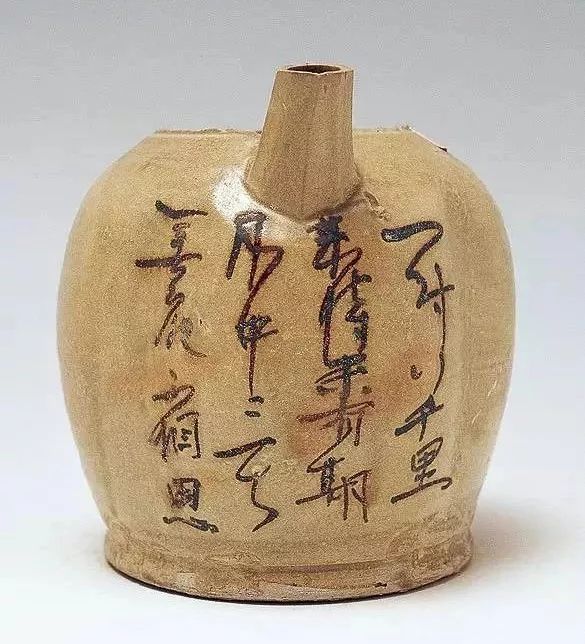 一別行千里
來時未有期
月中三十日
無夜不相思